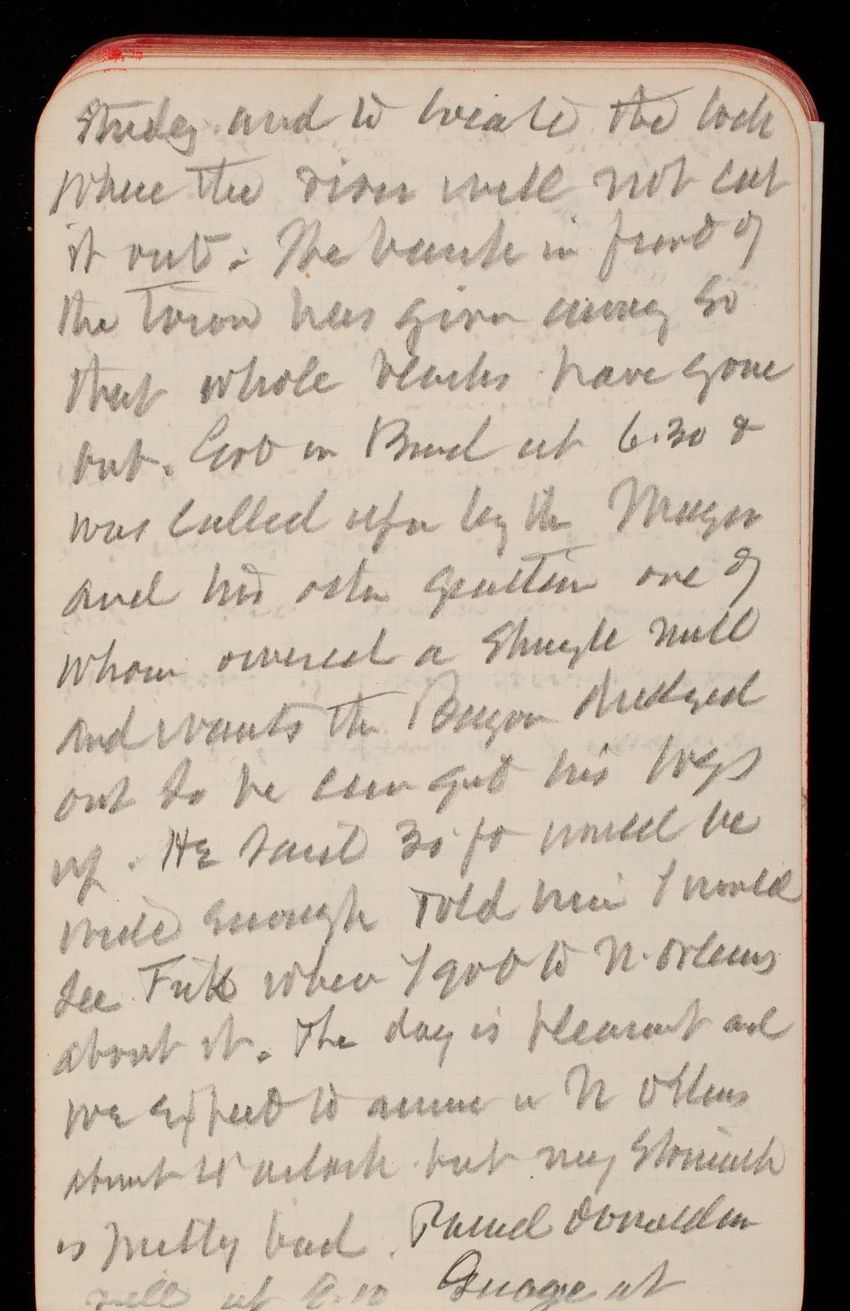 Study and to locate the lock
where the river will not cut
it out. The bank in front of
the Town has given away so
that whole blocks have gone
out. Got on Board at 6.30 &
was called upon by the Mayor
and his other gentlemen one of
whom owned a Shingle mill
and wants the Bayou dredged
out so he can get his logs
up. He said 30 ft would be
wide enough Told him I would
see when I got to N. Orleans
about it. The day is pleasant and
we expect to arrive in N Orleans
about 10 oclock but my Stomach
is pretty bad. Passed Donaldson
ville at 8.10 Guage at